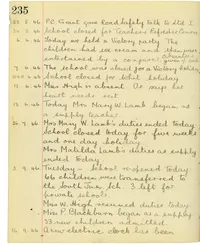 235
P.C. Grant gave Road Safety talk to Std I
School closed for Teachers Refresher Course
Today we held a Victory party. The
children had ice cream and then were
entertained by a conjuror.
The school was closed for a Victory Holiday
School closed for Whit holiday.
Miss High is absent. As says her
heart needs rest.
Today Mrs Mary W. Lamb began as
a supply teacher
Mrs Mary W. Lamb's duties ended today.
School closed today for five weeks
and one day holiday.
Mrs Matilda Lamb's duties as supply
ended today.
Tuesday - School re-opened today
66 children were transferred to
the South Jun. Sch. 3 left for
private schools.
Miss W. High resumed duties today
Mrs F. Blackburn began as supply.
33 new children admitted.
A new electric clock has been